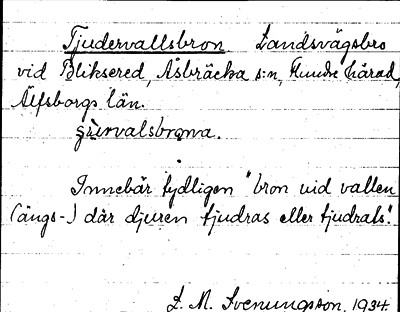 Tjudervallsbron Landsvägsbro
vid Bliksered, Åsbräcka s:n, Flundre härad,
Älfsborgs län.
Innebär tydligen "bron vid vallen
(ängs-) där djuren tjudras eller tjudrats".
L. M. Svenungsson, 1934.